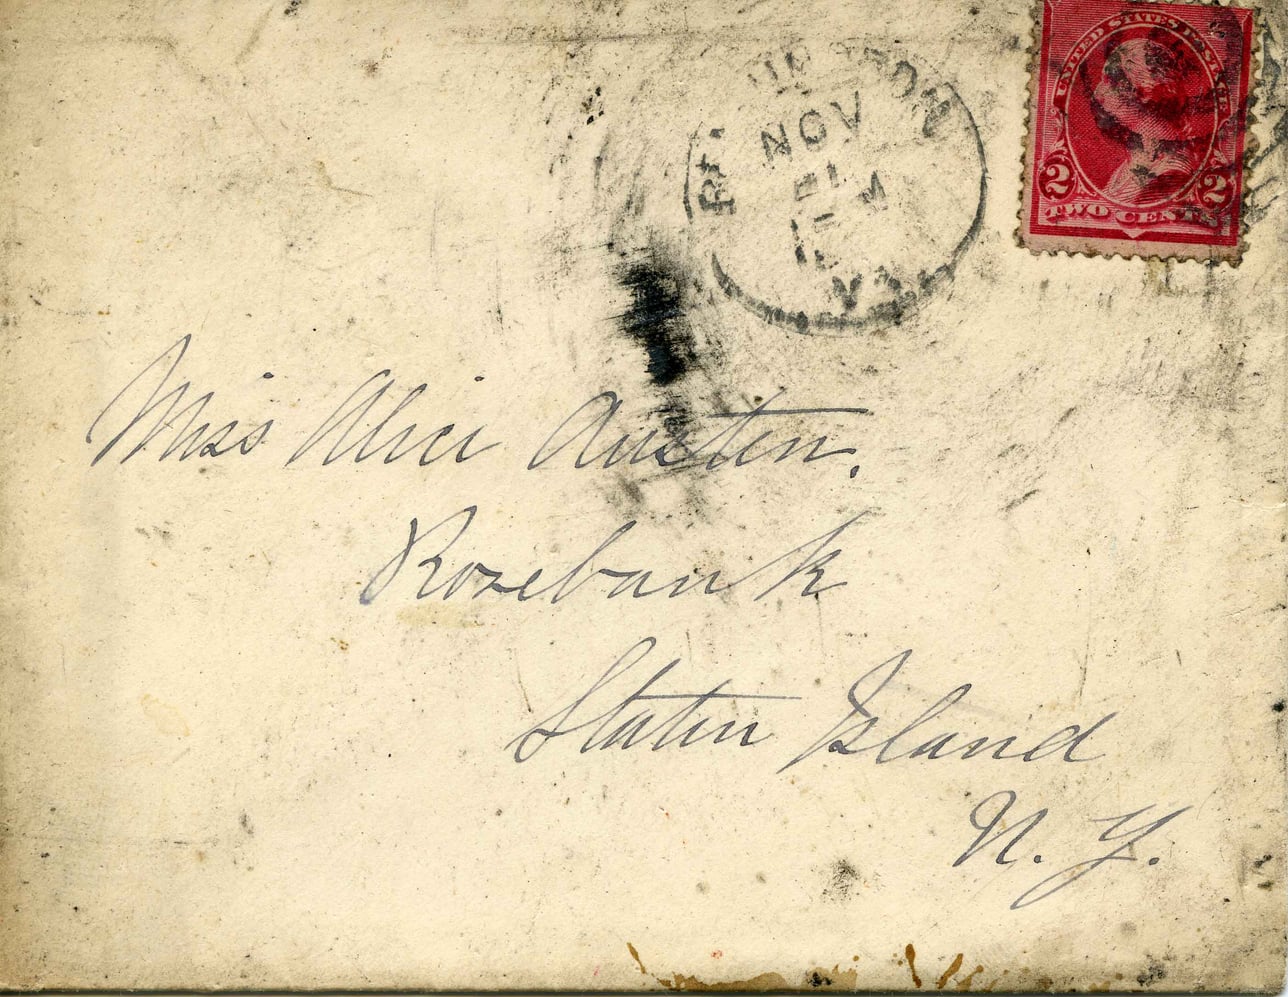 UNITED STATES POSTAGE
2 2
TWO CENTS
NOV
VA
Miss Alice Austen.
Rosebank
Staten Island
N. Y.